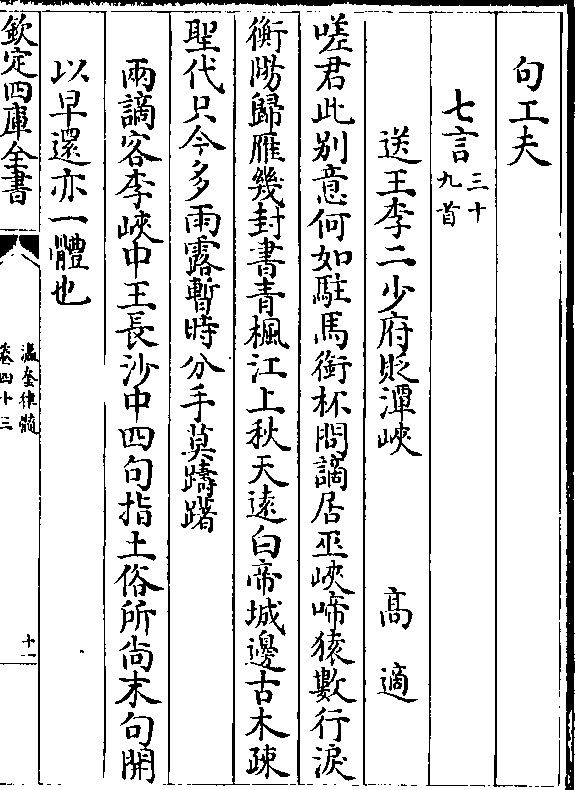 句工夫
七言三十九首
送王李二少府貶潭峽 高適
嗟君此别意何如駐馬銜杯問謫居巫峽啼猿數行淚
衡陽歸雁幾封書青楓江上秋天遠白帝城邊古木疎
聖代只今多雨露暫時分手莫躊躇
兩謫客李峽中王長沙中四句指土俗所尚末句開
以早還亦一體也
欽定四庫全書
瀛奎律髓
卷四十三
十一